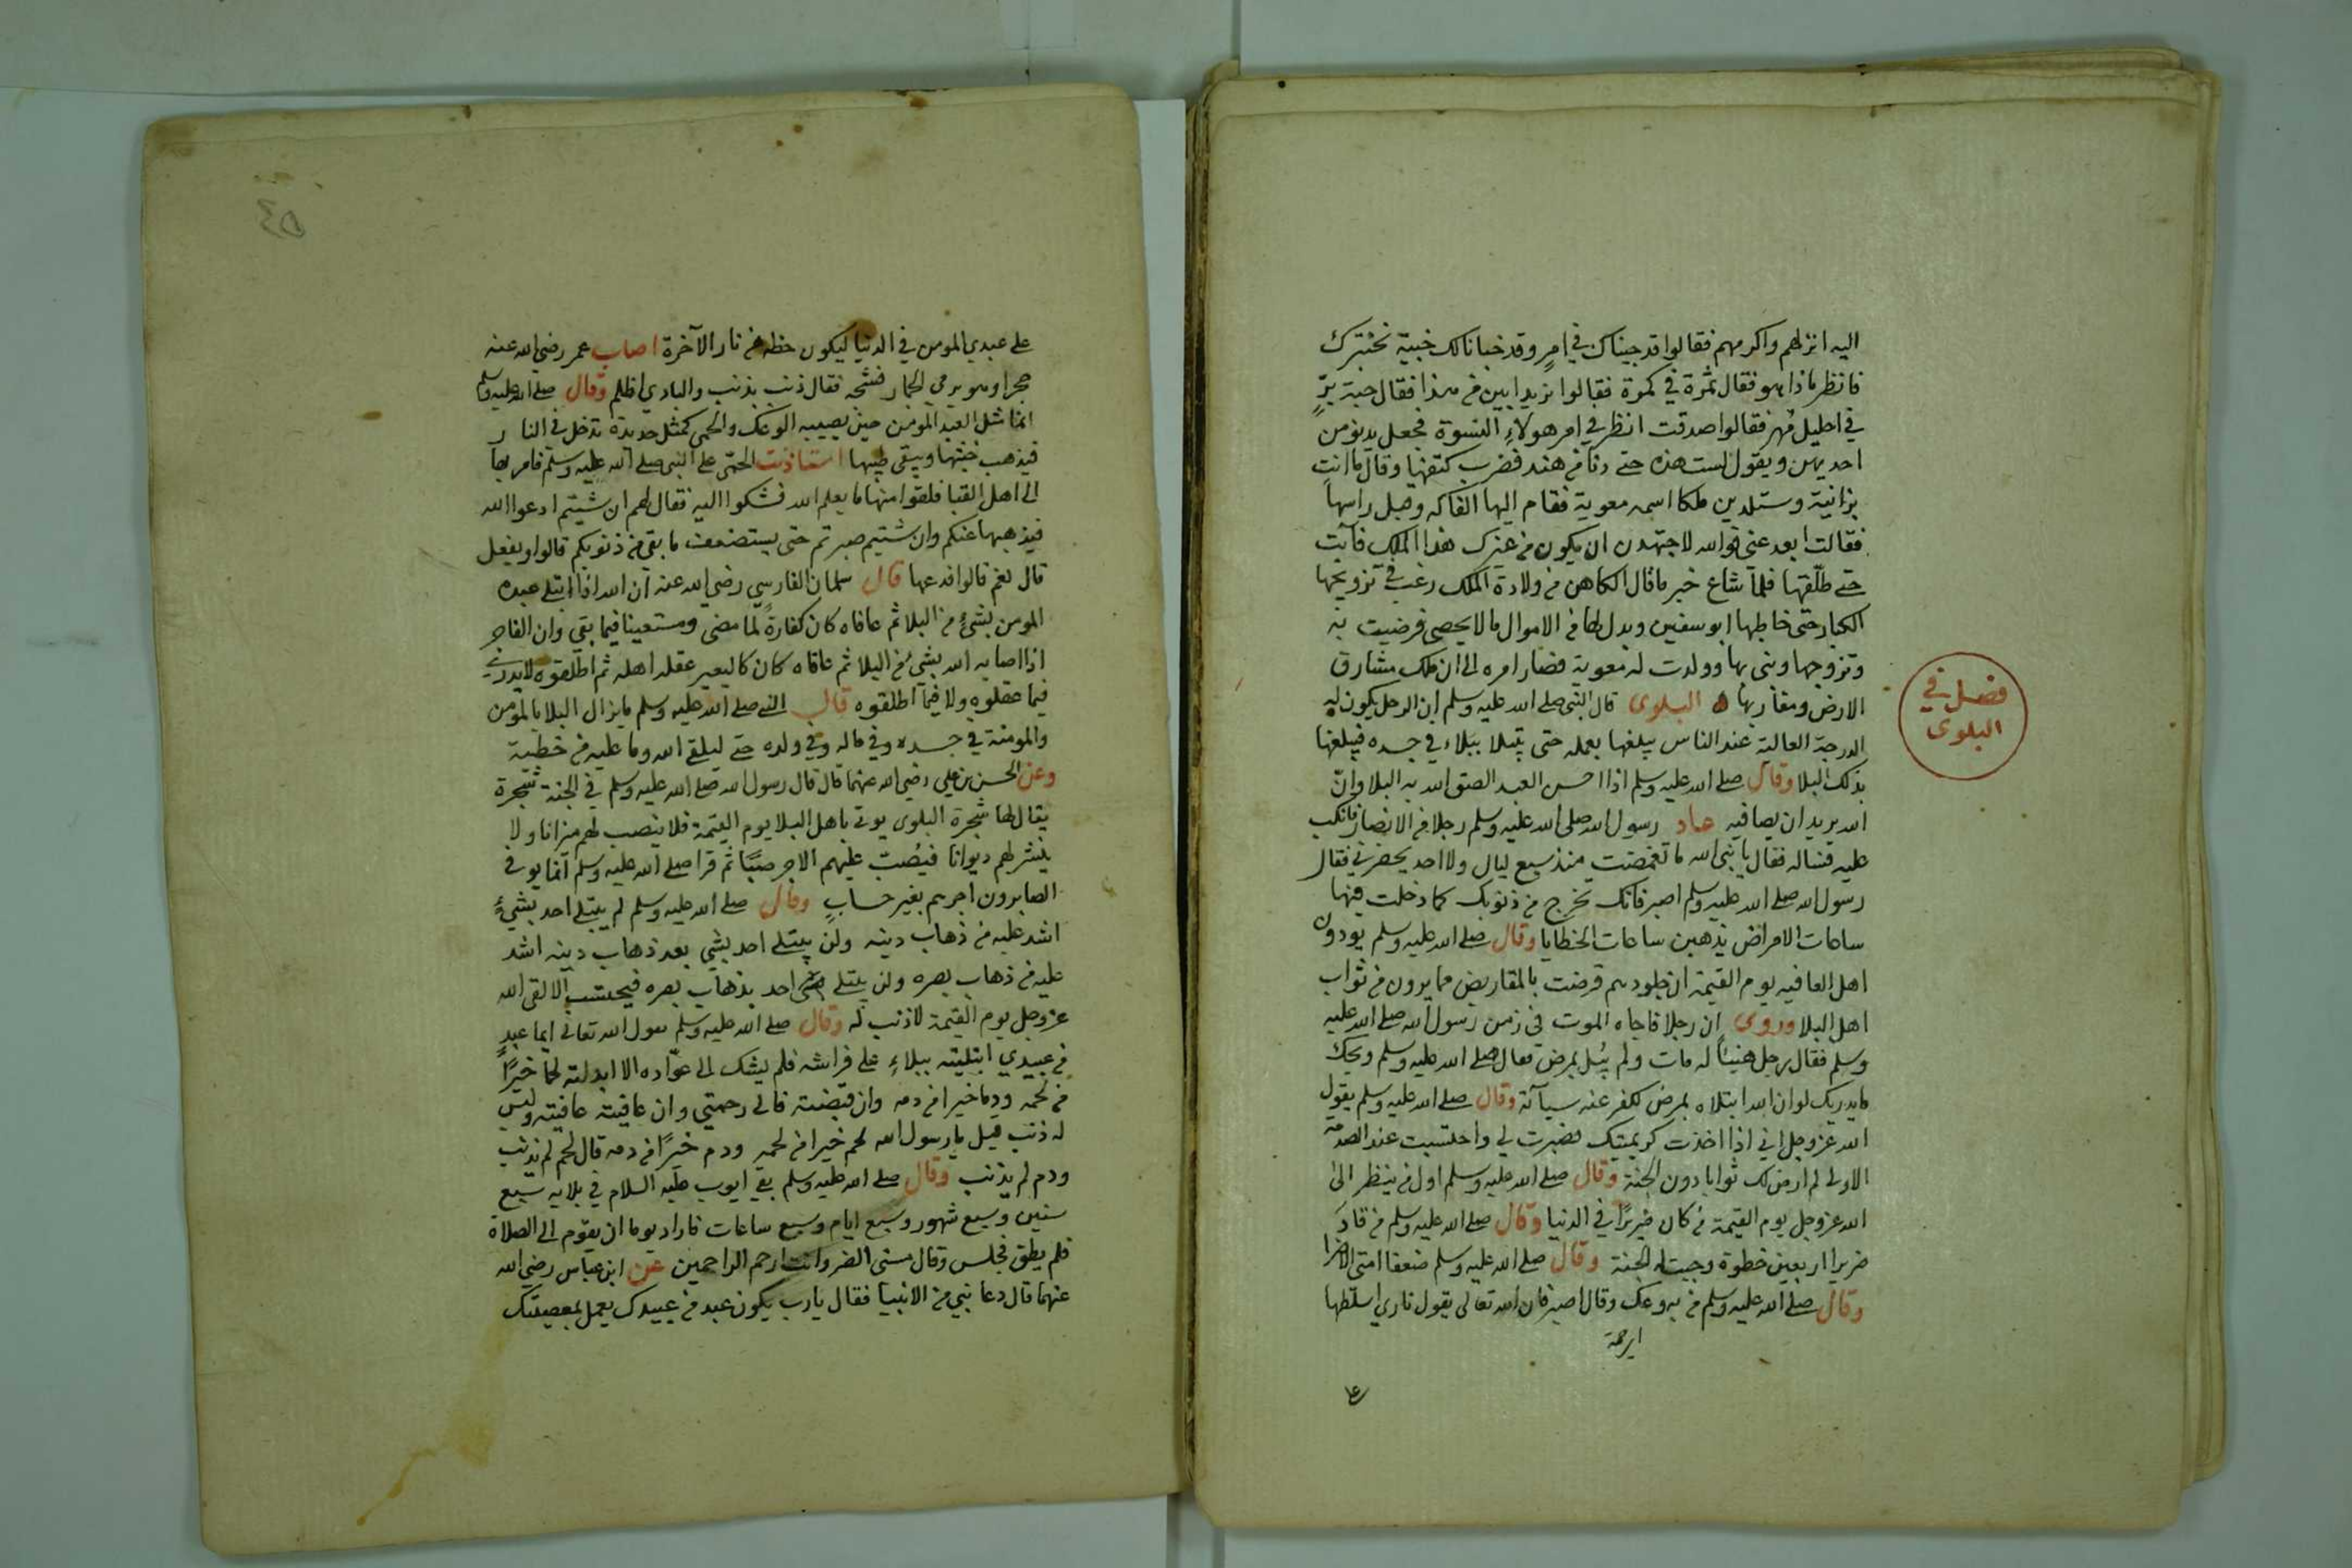 اليه انزلهم واكرمهم فقالوا قد جيناك في امرٍ وقد خبانا لك خبية نختبرك
فانظر ماذا هو فقال ثمرة في كمرة فقالوا نريد ابين من هذا فقال حبة برٍّ
في احليل مُهر فقالوا صدقت انظر في امر هولاءِ النسوة فجعل يدنو من
احديهن ويقول لست هذه حتى دنا من هند فضرب كتفها وقال ما انتِ
بزانية وستلدين ملكا اسمه معوية فقام اليها الفاكه وقبل راسها
فقالت ابعد عني فوالله لاجتهدن ان يكون من غيرك هذا الملك فآبت
حتى طلّقها فلما شاع خبر ما قال الكاهن من ولادة الملك رغب في تزويجها
الكبار حتى خاطبها ابو سفين وبدل لها من الاموال ما لا يحصى فرضيت به
وتزوجها وبنى بها وولدت له معوية فصار امره الى ان ملك مشارق
الارض ومغاربها ه البلوى قال النبى صلى الله عليه وسلم ان الرجل يكون له
فصل في
البلوى
الدرجة العالية عند الناس يبلغها بعمله حتى يبتلا ببَلاء في جسده فيبلغها
بذلك البلا وقال صلى الله عليه وسلم اذا احسن العبد الصق الله به البلا وانّ
الله يريد ان يصافيه عاد رسول الله صلى الله عليه وسلم رجلا من الانصار فانكب
عليه فساله فقال يا نبى الله ما تغمضت منذ سبع ليال ولا احد يحضرني فقال
رسول الله صلى الله عليه وسلم اصبر فانك تخرج من ذنوبك كما دخلت فيها
ساعات الامراض يذهبن ساعات الخطايا وقال صلى الله عليه وسلم يودون
اهل العافيه يوم القيمة ان جلودهم قرضت بالمقاريض مما يرون من ثواب
اهل البلا وروى ان رجلا فاجاه الموت في زمن رسول الله صلى الله عليه
وسلم فقال رجل هنيئاً له مات ولم يبُل بمرض فقال صلى الله عليه وسلم ويحك
ما يدريك لو ان الله ابتلاه بمرض لكفر عنه سيآته وقال صلى الله عليه وسلم يقول
الله عز وجل اني اذا اخذت كريمتيك فصبرت لي واحتسبت عند الصدمة
الاولى لم ارض لك ثوابا دون الجنة وقال صلى الله عليه وسلم اول من ينظر الى
الله عز وجل يوم القيمة من كان ضريرًا في الدنيا وقال صلى الله عليه وسلم من قادَ
ضريرا اربعين خطوة وجبت له الجنة وقال صلى الله عليه وسلم ضعفا امتى الاضرا
وقال صلى الله عليه وسلم من به وعك وقال اصبر فان الله تعالى يقول ناري اسلّطها
على عبدي المومن في الدنيا ليكون حظه من نار الآخرة اصاب عمر رضي الله عنه
حجر وهو يرمي الجمار فشجه فقال ذنب بذنب والبادي اظلم وقال صلى الله عليه وسلم
انما مثل العبد المومن حين يصيبه الوعك والحمى كمثل حديدة تدخل في النار
فيذهب خبثها ويبقى طيبها استاذنت الحمّى على النبى صلى الله عليه وسلم فامر بها
الى اهل القبا فلقوا منها ما يعلم الله فشكوا اليه فقال لهم ان شيتم ادعوا الله
فيذهبها عنكم وان شيتم صبرتم حتى يستضعف ما بقى من ذنوبكم قالوا ويفعل
قال نعم قالوا فدعها قال سلمان الفارسي رضى الله عنه ان الله اذا ابتلى عبده
المومن بشيءٍ من البلا ثم عافاه كان كفارةً لما مضى ومستعينا فيما بقي وان الفاجر
اذا اصابه الله بشيءٍ من البلا ثم عافاه كان كالبعير عقله اهله ثم اطلقوه لا يدري
فيما عقلوه ولا فيما اطلقوه قال النبى صلى الله عليه وسلم ما يزال البلا بالمومن
والمومنة في جسده وفي ماله وفي ولده حتى ليلقى الله وما عليه من خطية
وعن الحسن بن علي رضى الله عنهما قال قال رسول الله صلى الله عليه وسلم في الجنة شجرة
يقال لها شجرة البلوى يوتى باهل البلا يوم القيمة فلا ينصب لهم ميزانا ولا
ينشر لهم ديوانا فيُصبّ عليهم الاجر صبًّا ثم قرا صلى الله عليه وسلم انما يوفى
الصابرون اجرهم بغير حسابٍ وقال صلى الله عليه وسلم لم يبتلى احد بشيءٍ
اشد عليه من ذهاب دينه ولن يبتلى احد بشي بعد ذهاب دينه اشد
عليه من ذهاب بصره ولن يبتلى احد بذهاب بصره فيحتسب الا لقى الله
عز وجل يوم القيمة لا ذنب له وقال صلى الله عليه وسلم يقول الله تعالى ايما عبدٍ
من عبيدي ابتليته ببلاءٍ على فراشه فلم يشك الى عوّاده الا ابدلته لحمًا خيرًا
من لحمه ودما خيرا من دمه وان قبضته فالى رحمتي وان عافيته عافيته وليس
له ذنب قيل يا رسول الله لحم خيرا من لحمه ودم خيرًا من دمه قال لحم لم يذنب
ودم لم يذنب وقال صلى الله عليه وسلم بقي ايوب عليه السلام في بلايه سبع
سنين وسبع شهور وسبع ايام وسبع ساعات فاراد يوما ان يقوم الى الصلاة
فلم يطق فجلس وقال مسنى الضر وانت ارحم الراحمين عن ابن عباس رضى الله
عنهما قال دعا نبي من الانبيا فقال يا رب يكون عبد من عبيدك يعمل بمعصيتك